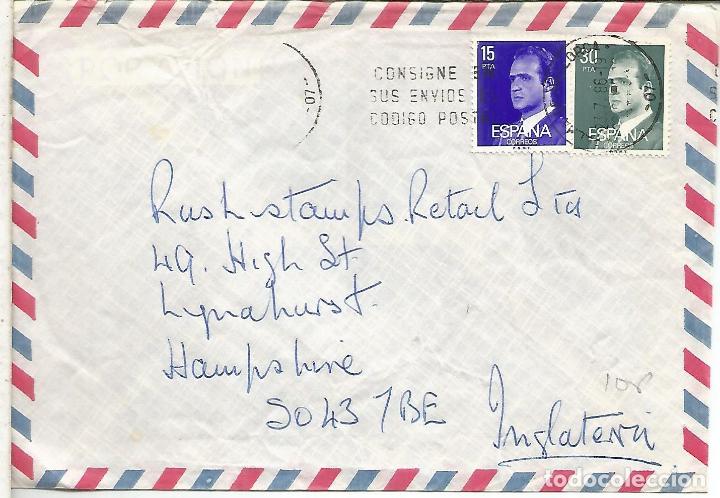 CONSIGNE EN
SUS ENVIOS
CODIGO POST
-07-
15
PTA
ESPAÑA
CORREOS
30
PTA
ESPAÑA
CORREOS
07-
Rushstamps. Retail Ltd
49. High St.
Lyndhurst.
Hampshire
SO43 7BE
Inglaterra
10P
todocoleccion